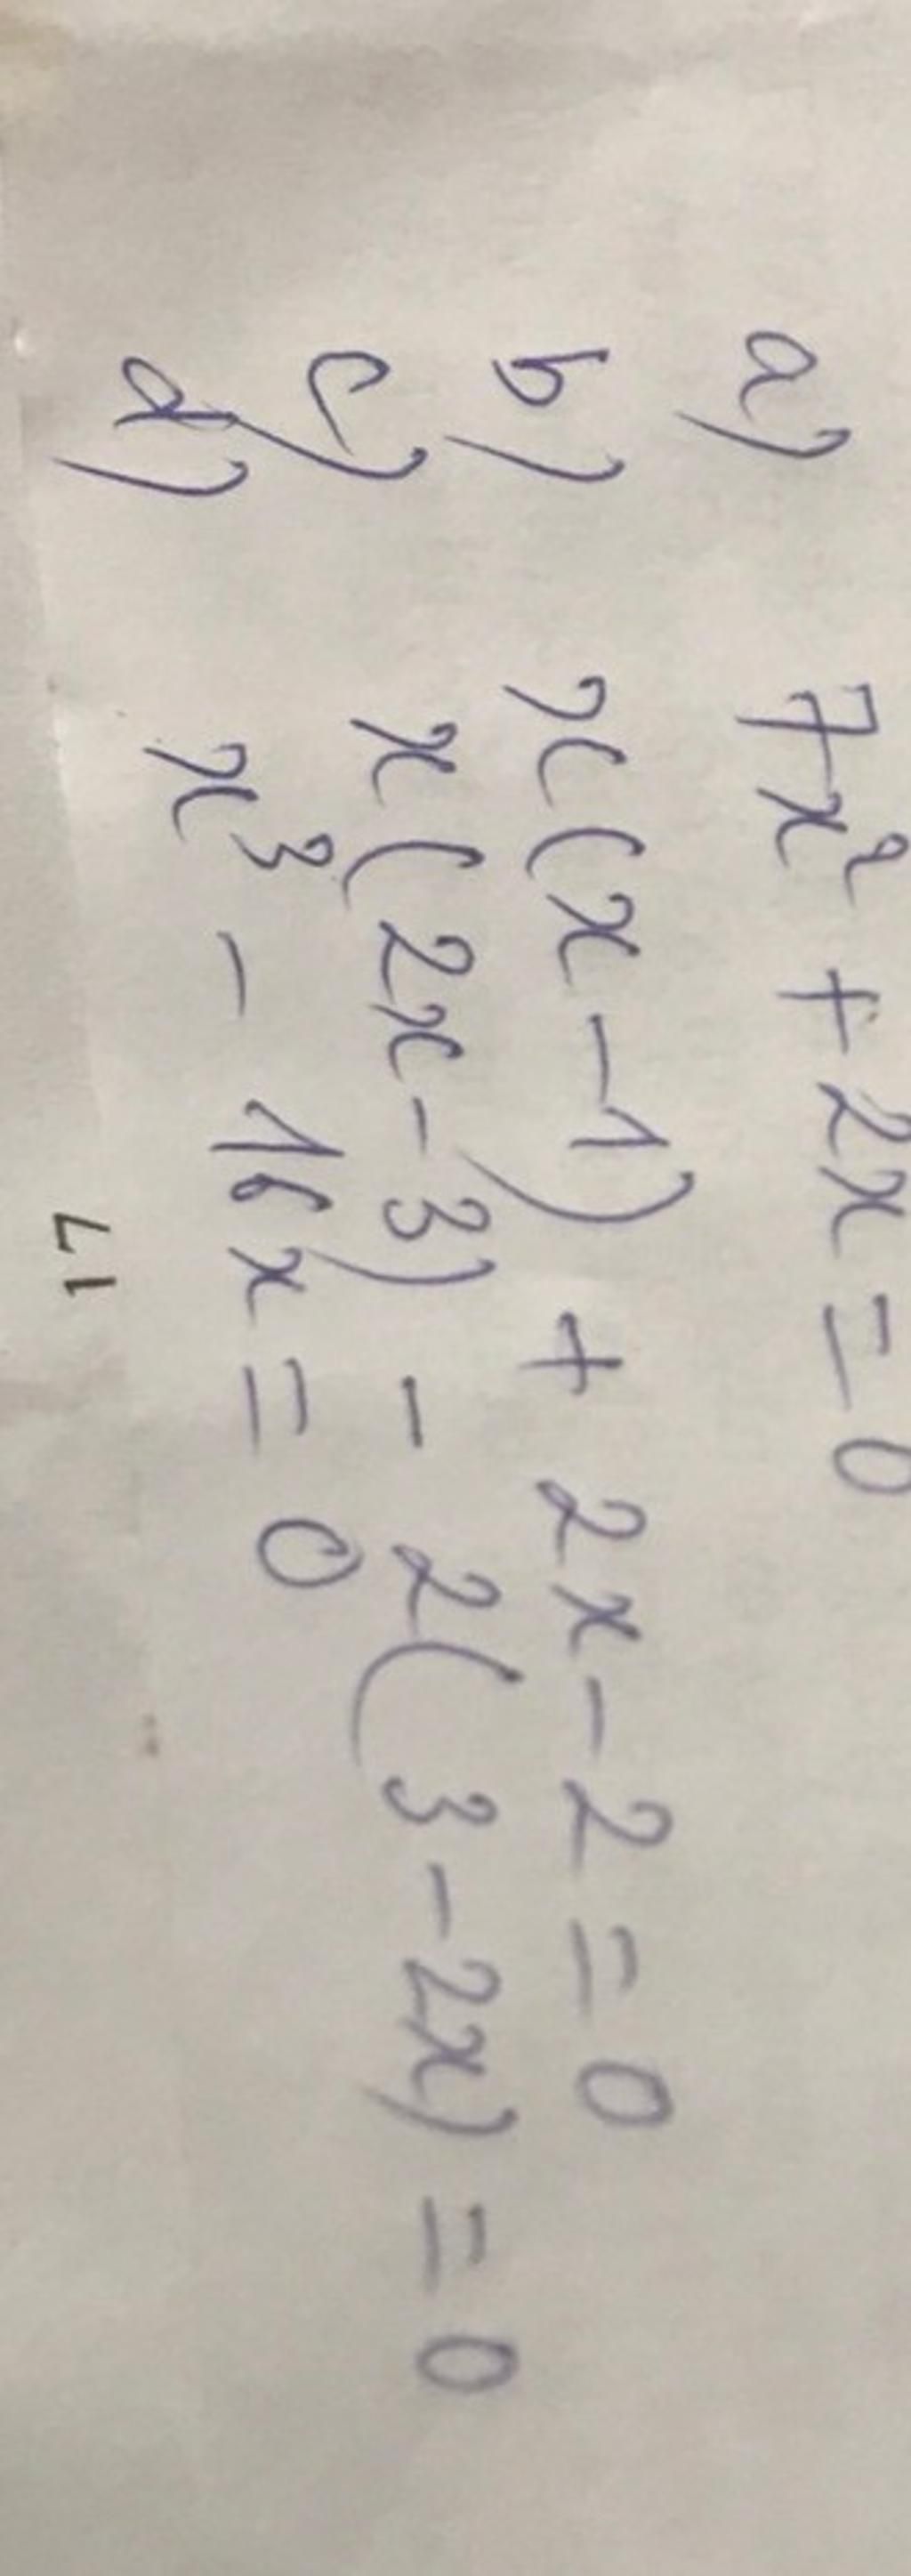 a) 7x² + 2x = 0
b) x(x - 1) + 2x - 2 = 0
c) x(2x - 3) - 2(3 - 2x) = 0
d) x³ - 16x = 0